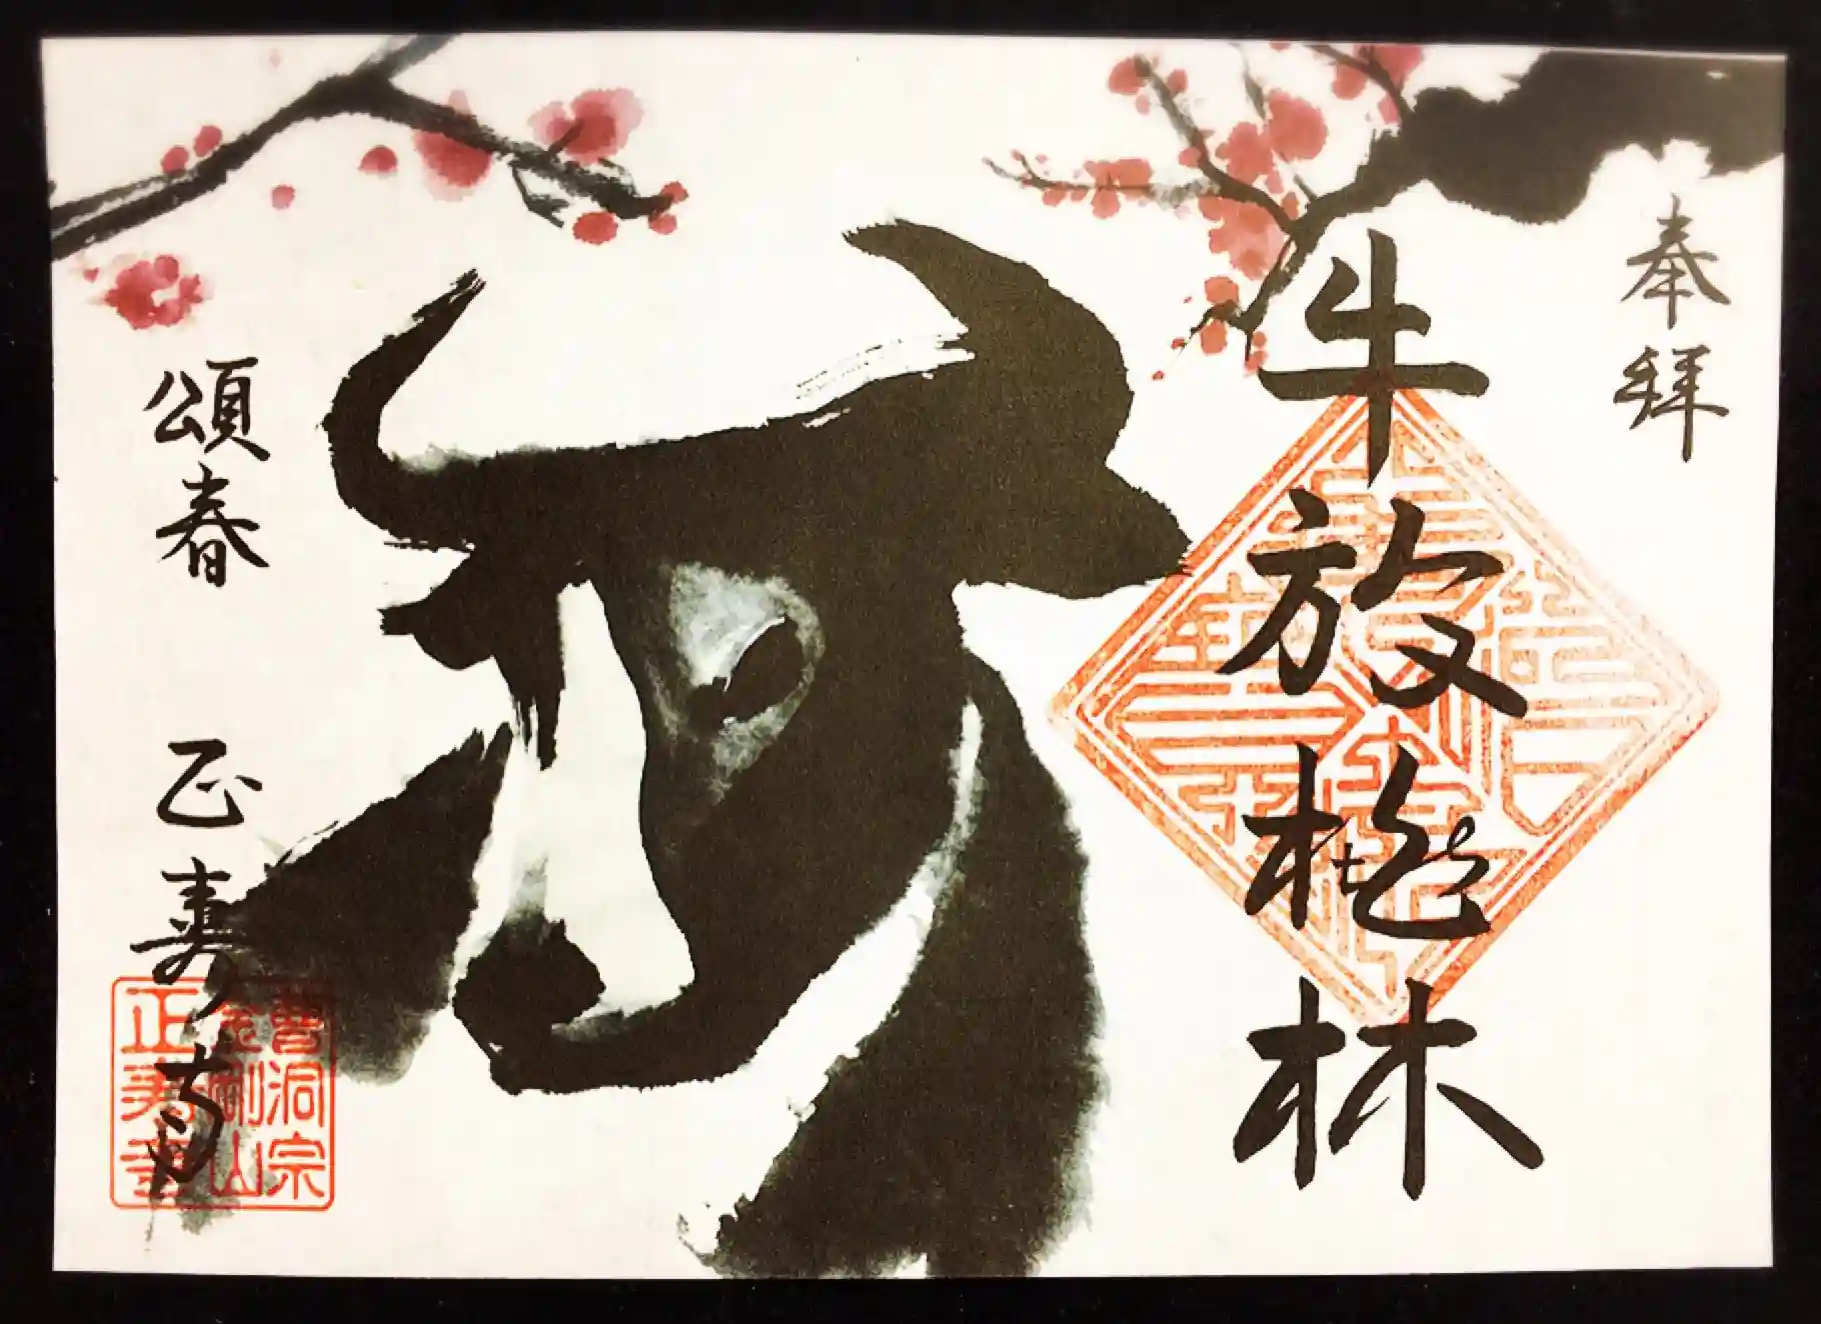 奉拜
牛放桃林
頌春
正寿寺
曹洞宗
金剛山
正寿寺